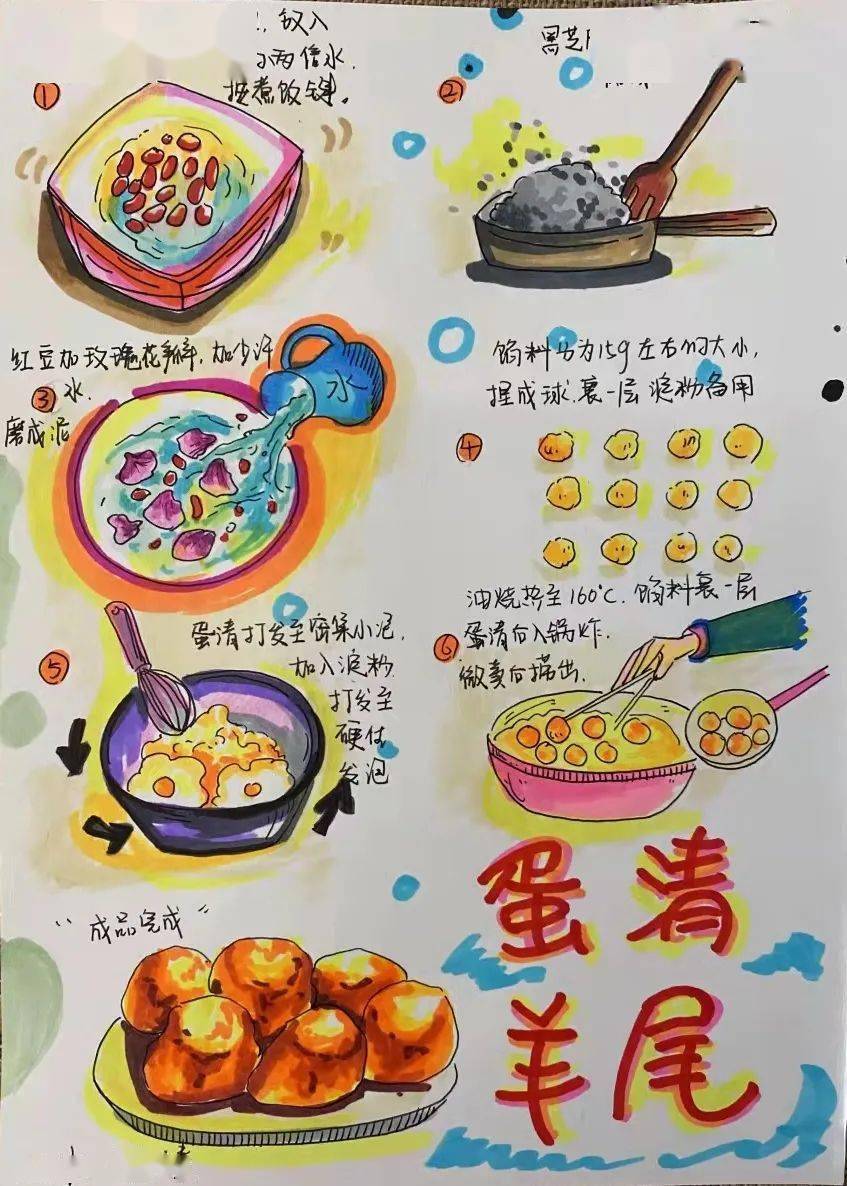 ①
放入
两倍水.
按煮饭键。
②
黑芝
红豆加玫瑰花瓣,加少许
③ 水.
磨成泥
水
馅料分为15g左右的大小,
捏成球.裹一层淀粉备用
④
油烧热至160℃.馅料裹一层
⑥ 蛋清后入锅炸.
微黄后捞出.
蛋清打发至密集小泡,
⑤ 加入淀粉
打发至
硬体
发泡
蛋清
羊尾
“成品完成”